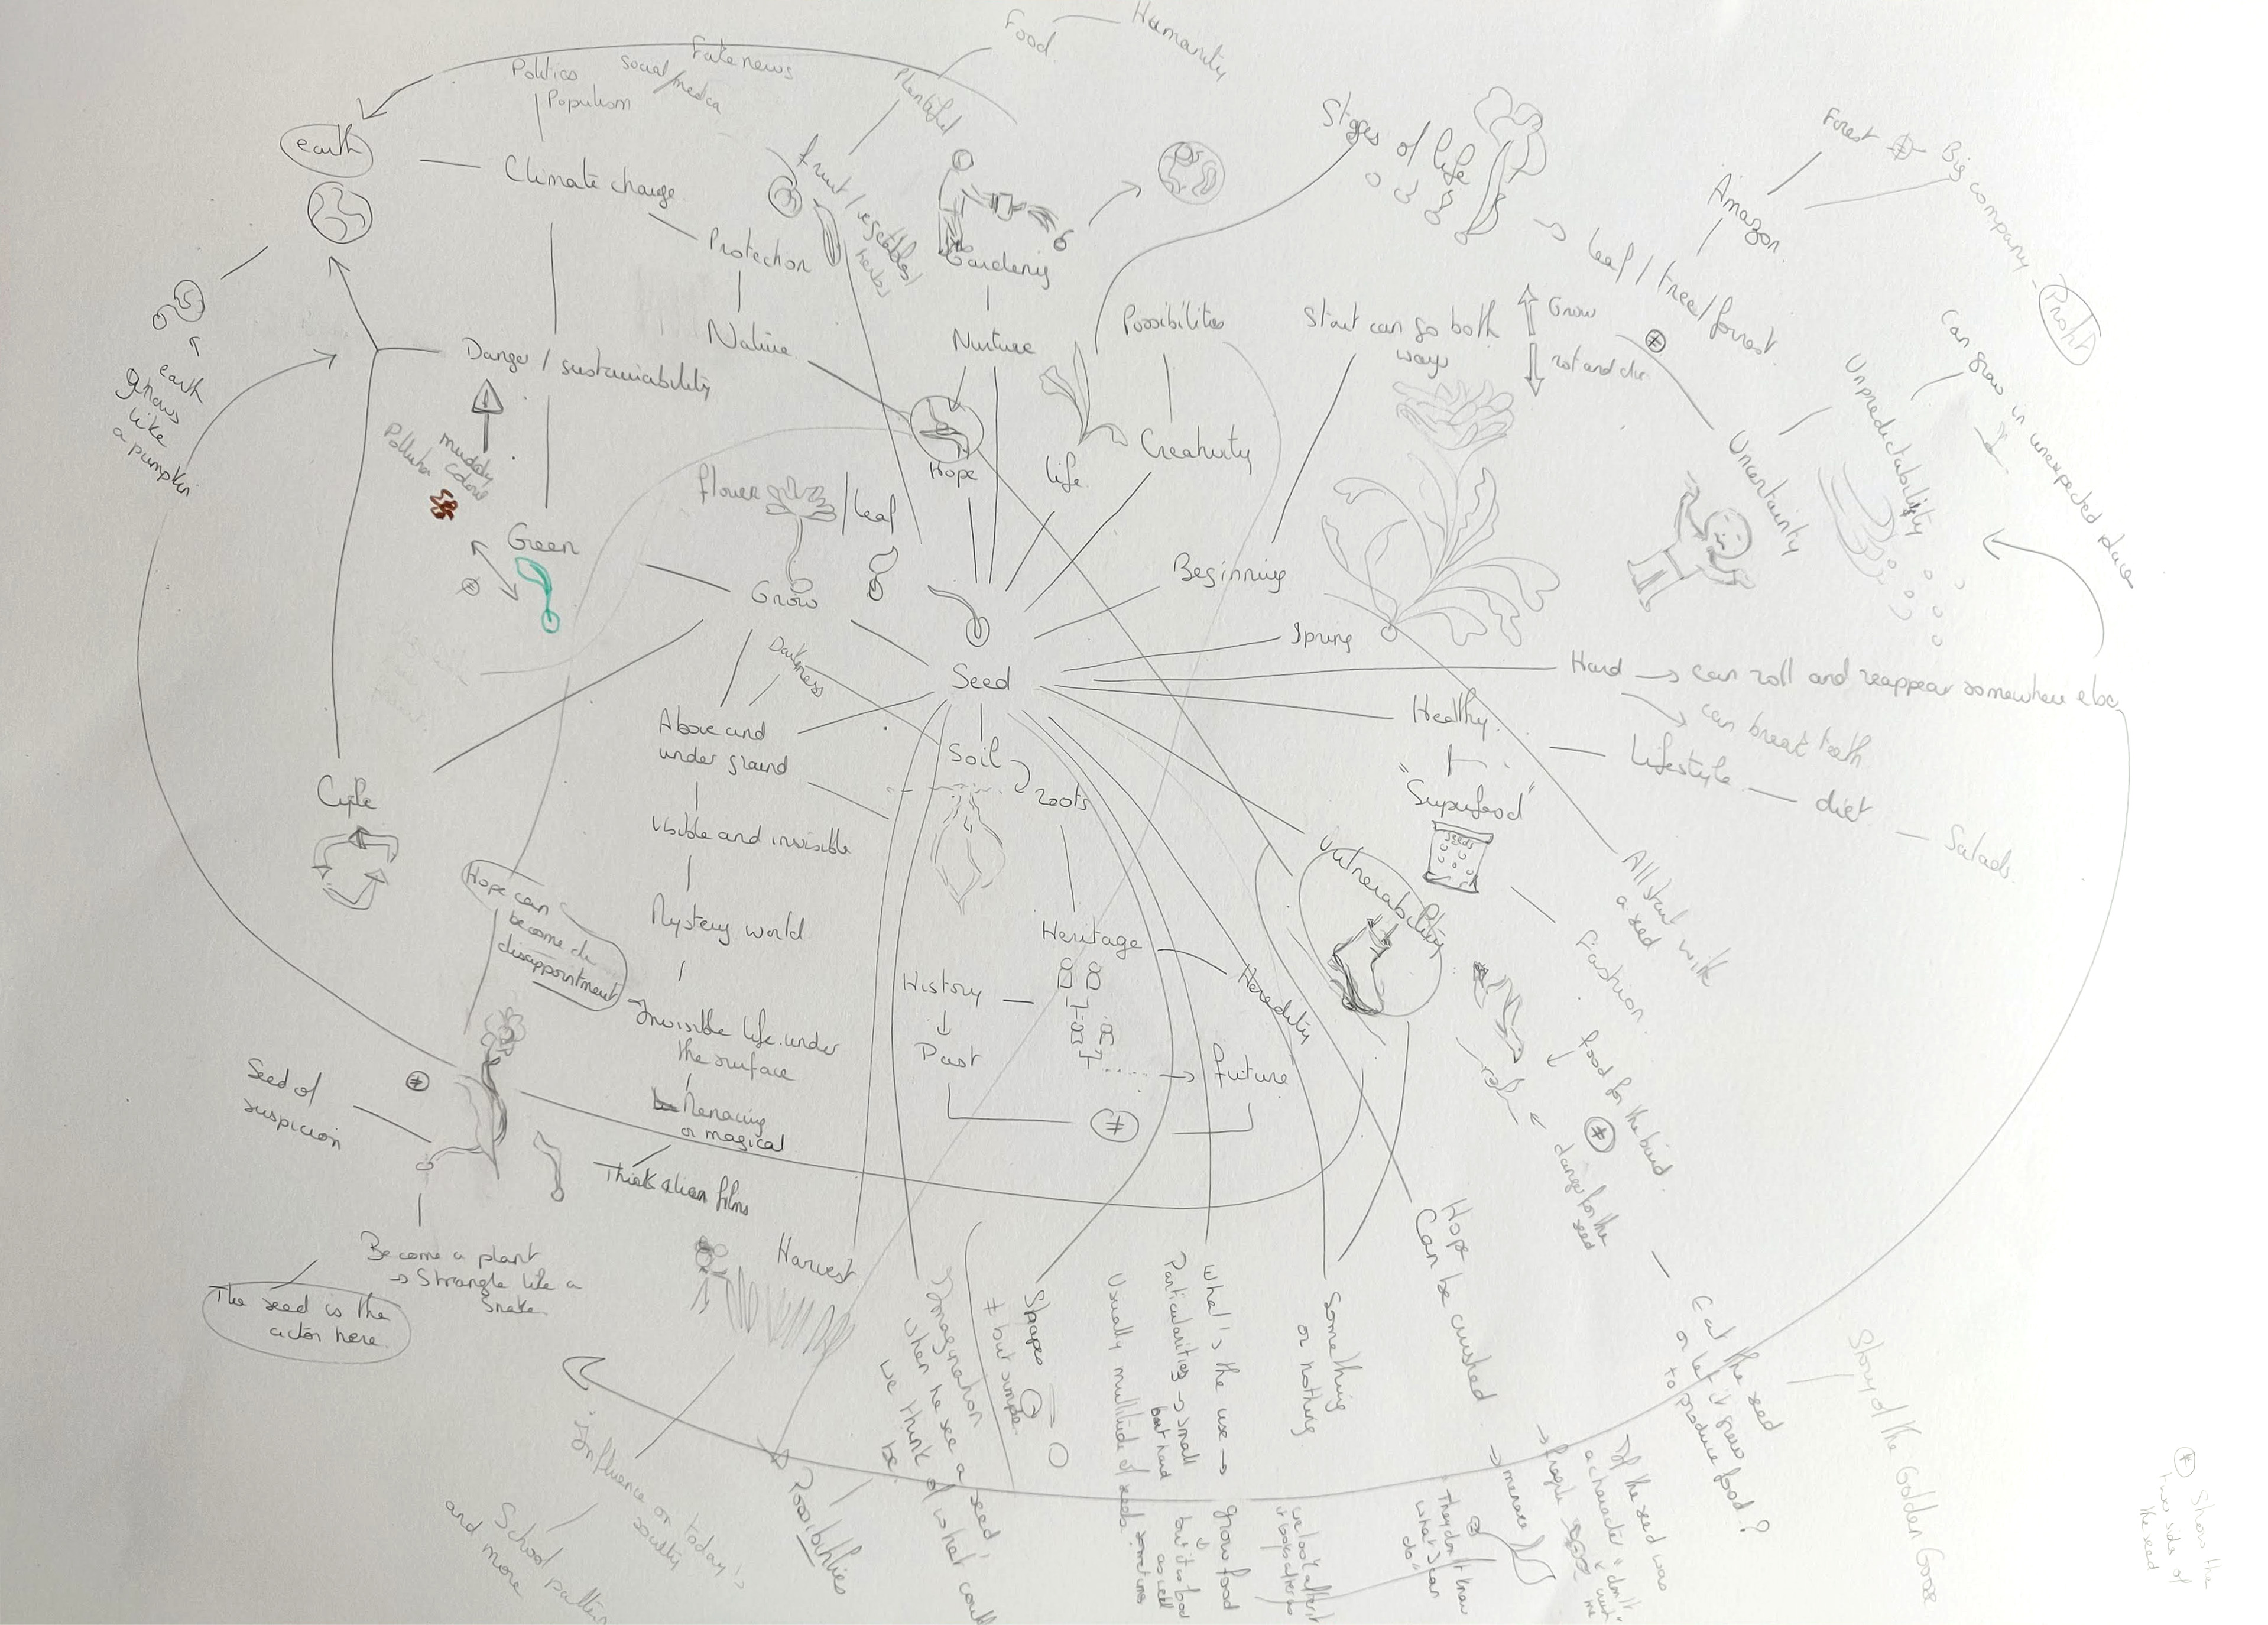 Food
Humanity
Fake news
Social / media
Politics
Populism
Plentiful
earth
Climate change
Protection
Nature
fruit / vegetables /
herbs
Gardening
Nurture
Hope
Stages of life
leaf / tree / forest
Amazon
Forest
≠
Big company - Profit
Possibilities
Creativity
life
Start can go both
ways
Grow
rot and die
≠
Uncertainty
Unpredictability
Can grow in unexpected place
earth
grows
like
a pumpkin
Danger / sustainability
muddy
colour
Pollution
Green
≠
flower
/ leaf
Grow
Darkness
Seed
Beginning
Spring
Hard → can roll and reappear somewhere else
can break teeth
Healthy
Lifestyle — diet — Salads
"Superfood"
SEEDS
Fashion
All start with
a seed
Above and
under ground
Soil
roots
Visible and invisible
Mystery world
Invisible life under
the surface
Menacing
or magical
Think alien films
Cycle
Hope can
become
disappointment
Heritage
Heredity
History
Past
future
≠
Vulnerability
food for the bird
≠
danger for the
seed
Eat the seed
or let it grow
to produce food?
Story of the Golden Goose
Seed of
suspicion
≠
Become a plant
→ Strangle like a
snake
The seed is the
actor here
Harvest
Influence on today's
society
School
and more
Possibilities
Imagination
when we see a seed,
we think of what could
be
Shapes
≠ but simple
What's the use → grow food
Particularities → small
but hard
Usually multitude of seeds
sometimes
we look after it
it looks after us
Something
or nothing
Hope
Can be crushed
If the seed was
a character
→ fragile
→ menace
They don't know
what I can
do
≠ Show the
two side of
the seed